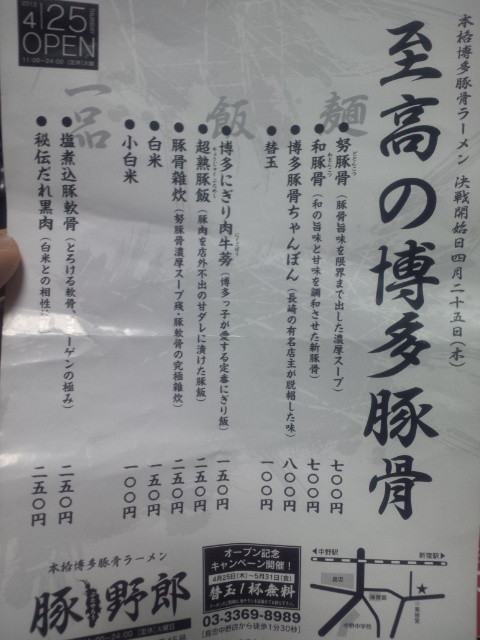 2013
4/25
THURSDAY
OPEN
11:00〜24:00 [定休]火曜
本格博多豚骨ラーメン 決戦開始日四月二十五日(木)
至高の博多豚骨
麺
●努豚骨(豚骨旨味を限界まで出した濃厚スープ) 七〇〇円
●和豚骨(和の旨味と甘味を調和させた新豚骨) 七〇〇円
●博多豚骨ちゃんぽん(長崎の有名店主が脱帽した味) 八〇〇円
●替玉 一〇〇円
飯
●博多にぎり肉牛蒡(博多っ子が愛する定番にぎり飯) 一五〇円
●超熟豚飯(豚肉を店外不出の甘ダレに漬けた豚飯) 二五〇円
●豚骨雑炊(努豚骨濃厚スープ残・豚軟骨の究極雑炊) 二五〇円
●白米 一五〇円
●小白米 一〇〇円
一品
●塩煮込豚軟骨(とろける軟骨、コラーゲンの極み) 二五〇円
●秘伝だれ黒肉(白米との相性 二五〇円
本格博多豚骨ラーメン
豚野郎
オープン記念
キャンペーン開催!
4月25日(木)〜5月31日(金)
替玉1杯無料
03-3369-8989
中野駅
新宿駅
中野中学校